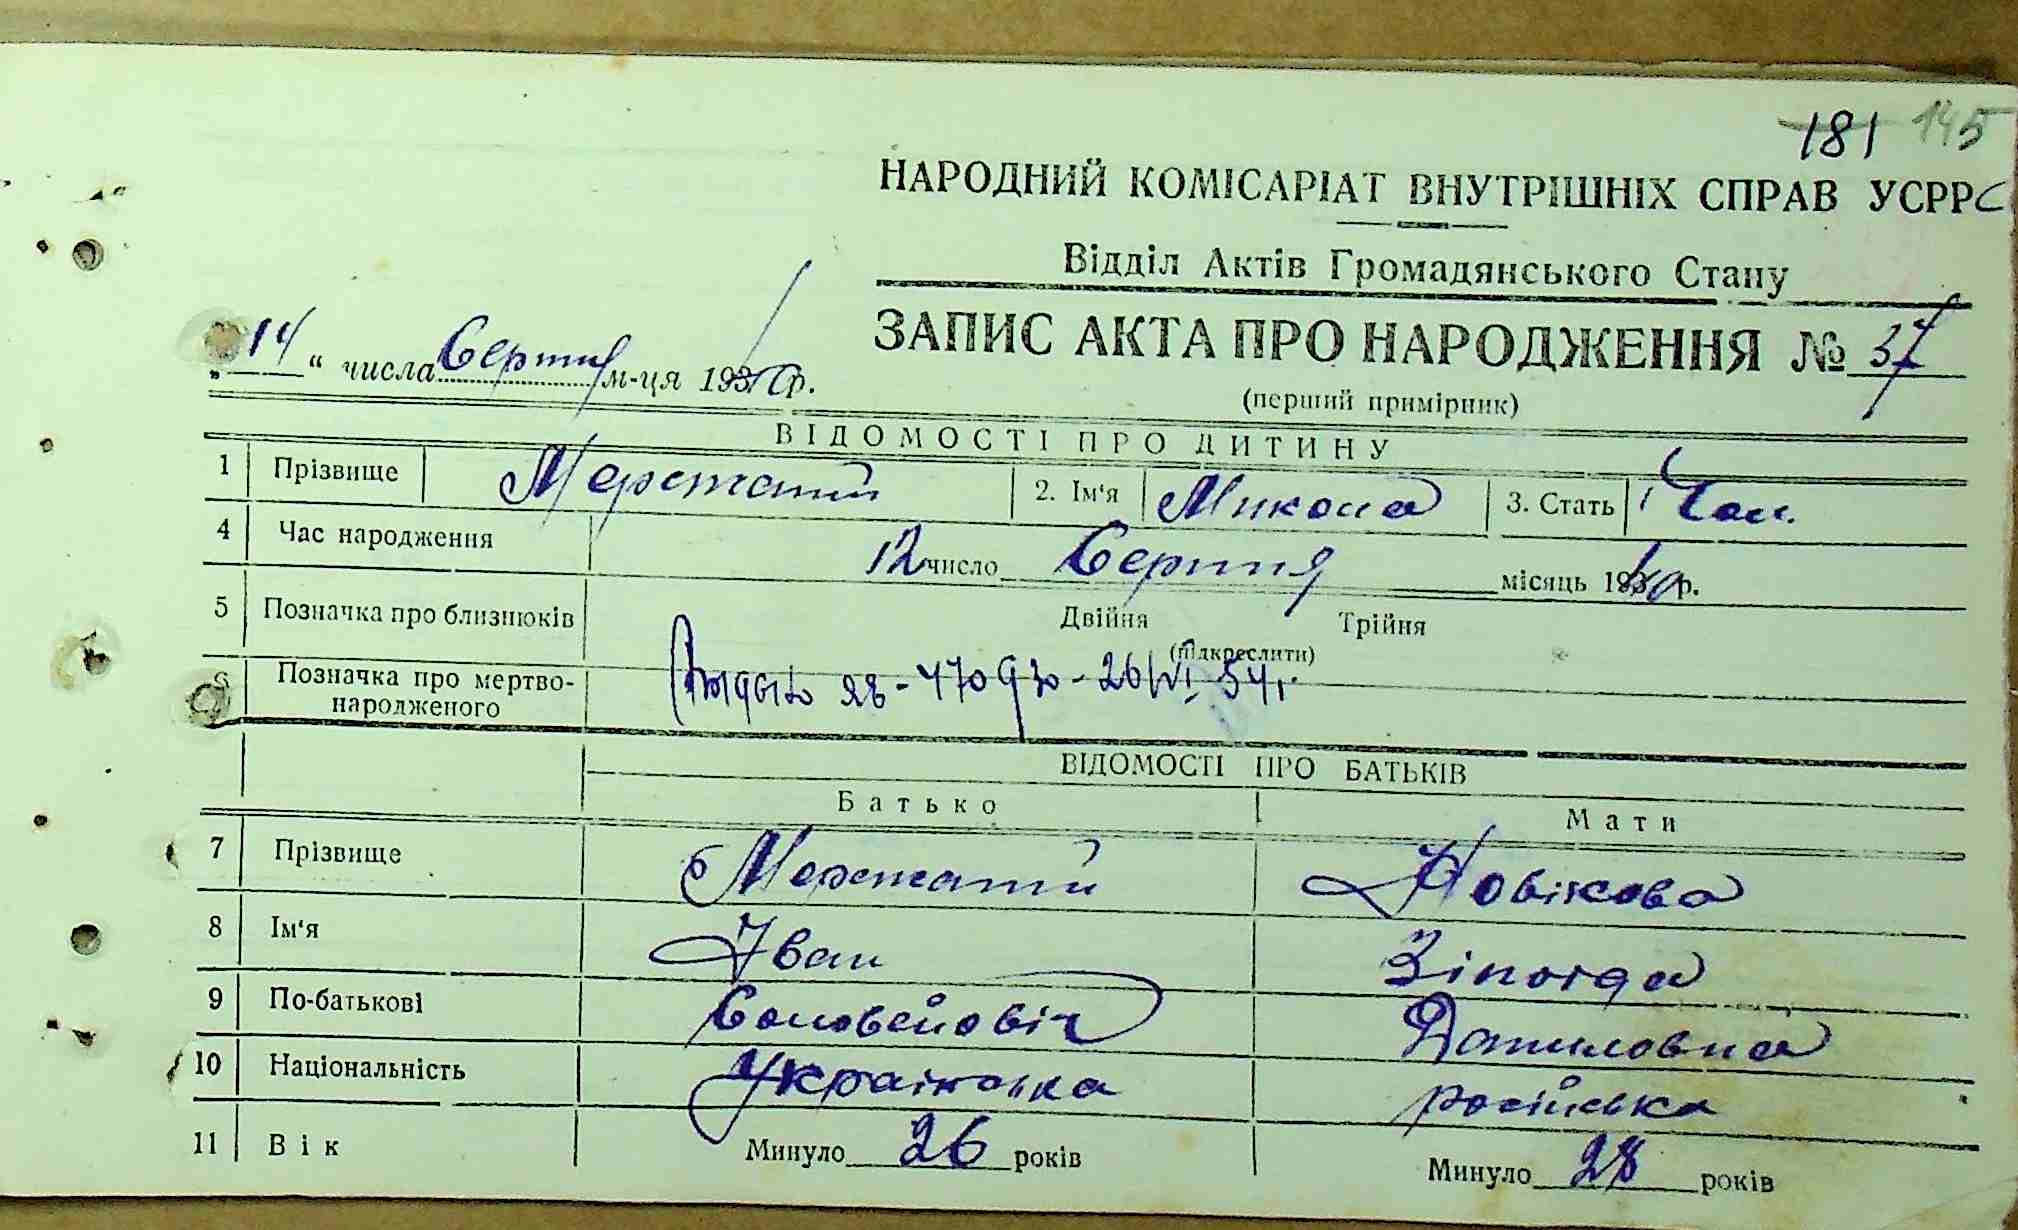 181 145
НАРОДНИЙ КОМІСАРІАТ ВНУТРІШНІХ СПРАВ УСРРС
Відділ Актів Громадянського Стану
ЗАПИС АКТА ПРО НАРОДЖЕННЯ № 37
„14“ числа Серпня м-ця 193 р.
(перший примірник)
ВІДОМОСТІ ПРО ДИТИНУ
1 Прізвище 2. Ім'я Микола 3. Стать Чол.
4 Час народження 12 число Серпня місяць 1940 р.
5 Позначка про близнюків Двійня Трійня
(підкреслити)
6 Позначка про мертво-
народженого 26/VI 54 г.
ВІДОМОСТІ ПРО БАТЬКІВ
Батько Мати
7 Прізвище Новікова
8 Ім'я Іван Зіноіда
9 По-батькові Соловейовіч Даниловна
10 Національність Українська російська
11 Вік Минуло 26 років Минуло 28 років